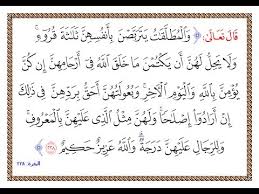 قَالَ تَعَالَى: ﴿ وَالْمُطَلَّقَاتُ يَتَرَبَّصْنَ بِأَنفُسِهِنَّ ثَلَاثَةَ قُرُوءٍ
وَلَا يَحِلُّ لَهُنَّ أَن يَكْتُمْنَ مَا خَلَقَ اللَّهُ فِي أَرْحَامِهِنَّ إِن كُنَّ
يُؤْمِنَّ بِاللَّهِ وَالْيَوْمِ الْآخِرِ وَبُعُولَتُهُنَّ أَحَقُّ بِرَدِّهِنَّ فِي ذَلِكَ
إِنْ أَرَادُوا إِصْلَاحًا وَلَهُنَّ مِثْلُ الَّذِي عَلَيْهِنَّ بِالْمَعْرُوفِ
وَلِلرِّجَالِ عَلَيْهِنَّ دَرَجَةٌ وَاللَّهُ عَزِيزٌ حَكِيمٌ ٢٢٨ ﴾
البقرة: ٢٢٨